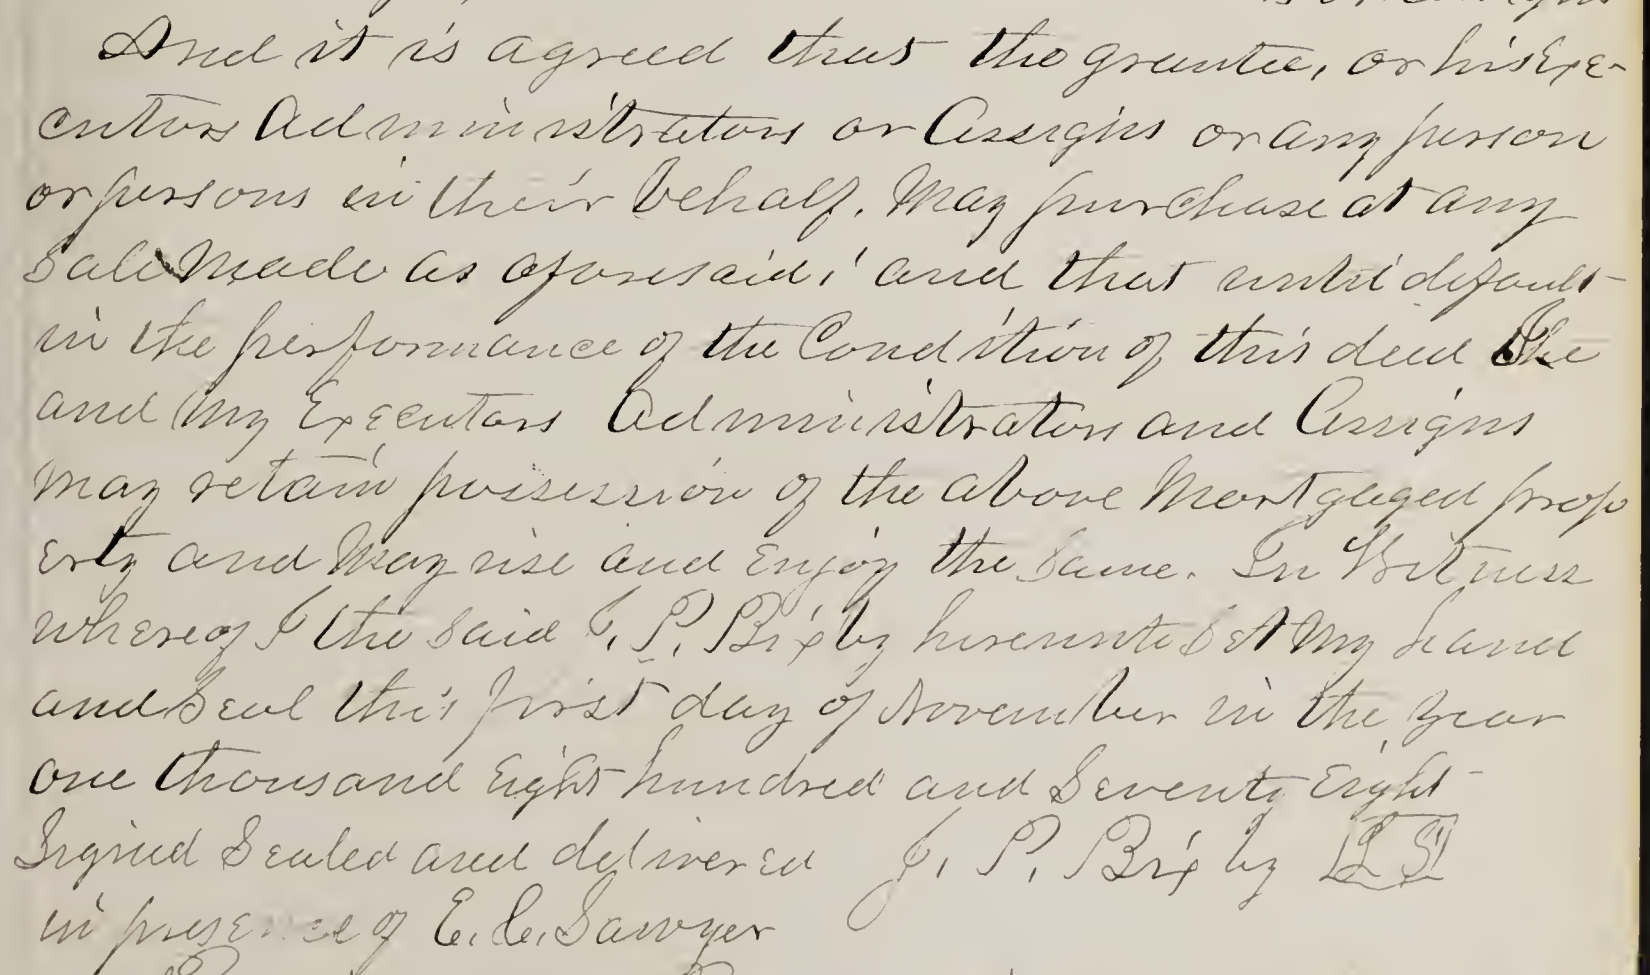 And it is agreed that the grantee, or his Exe-
cutors Administrators or Assigns or any person
or persons in their behalf. May purchase at any
Sale Made as aforesaid; and that until default
in the performance of the Condition of this deed
and My Executors Administrators and Assigns
May retain possession of the above Mortgaged prop
erty and May use and Enjoy the Same. In Witness
whereof I the Said J. P. Bixby hereunto Set My hand
and Seal this first day of November in the year
one thousand Eight hundred and Seventy Eight
Signed Sealed and delivered J. P. Bixby L S
in presence of E. C. Sawyer